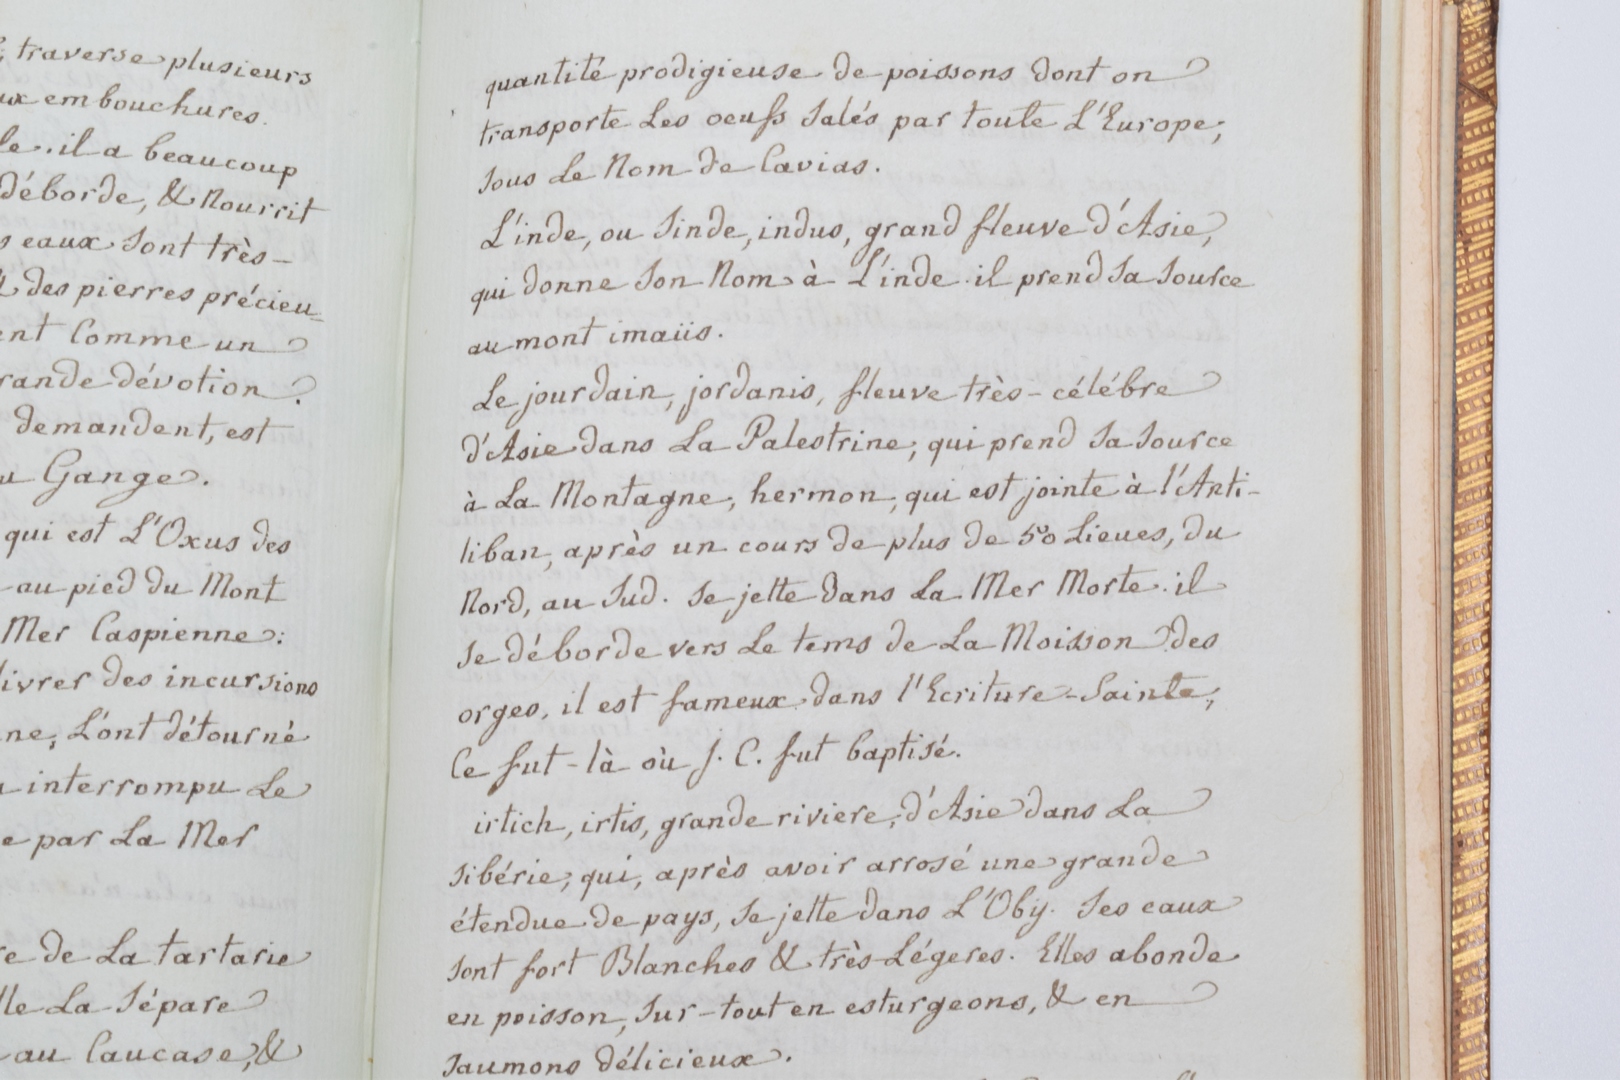 traverse plusieurs
ux embouchures.
le. il a beaucoup
déborde, & Nourrit
s eaux Sont très-
des pierres précieu_
ent Comme un
rande dévotion.
demandent, est
u Gange.
qui est L'Oxus des
au pied du Mont
Mer Caspienne:
livrer des incursions
ne, L'ont détourné
interrompu Le
e par La Mer
re de La tartarie
lle La Sépare
au Caucase, &
quantité prodigieuse de poissons dont on
transporte Les oeufs Salés par toute L'Europe,
Sous Le Nom de Cavias.
L'inde, ou Sinde, indus, grand fleuve d'Asie,
qui donne Son Nom à L'inde. il prend Sa Source
au mont imaüs.
Le jourdain, jordanis, fleuve très-célébre
d'Asie dans La Palestrine, qui prend Sa Source
à La Montagne, hermon, qui est jointe à l'Anti-
liban, après un cours de plus de 50 Lieues, du
Nord, au Sud. Se jette dans La Mer Morte. il
Se déborde vers Le tems de La Moisson des
orges, il est fameux dans l'Ecriture-Sainte,
Ce fut-là où J. C. fut baptisé.
irtich, irtis, grande riviere, d'Asie dans La
Sibérie, qui, après avoir arrosé une grande
étendue de pays, Se jette dans L'Oby. Ses eaux
Sont fort Blanches & très-Légeres. Elles abonde
en poisson, Sur-tout en esturgeons, & en
Saumons délicieux.